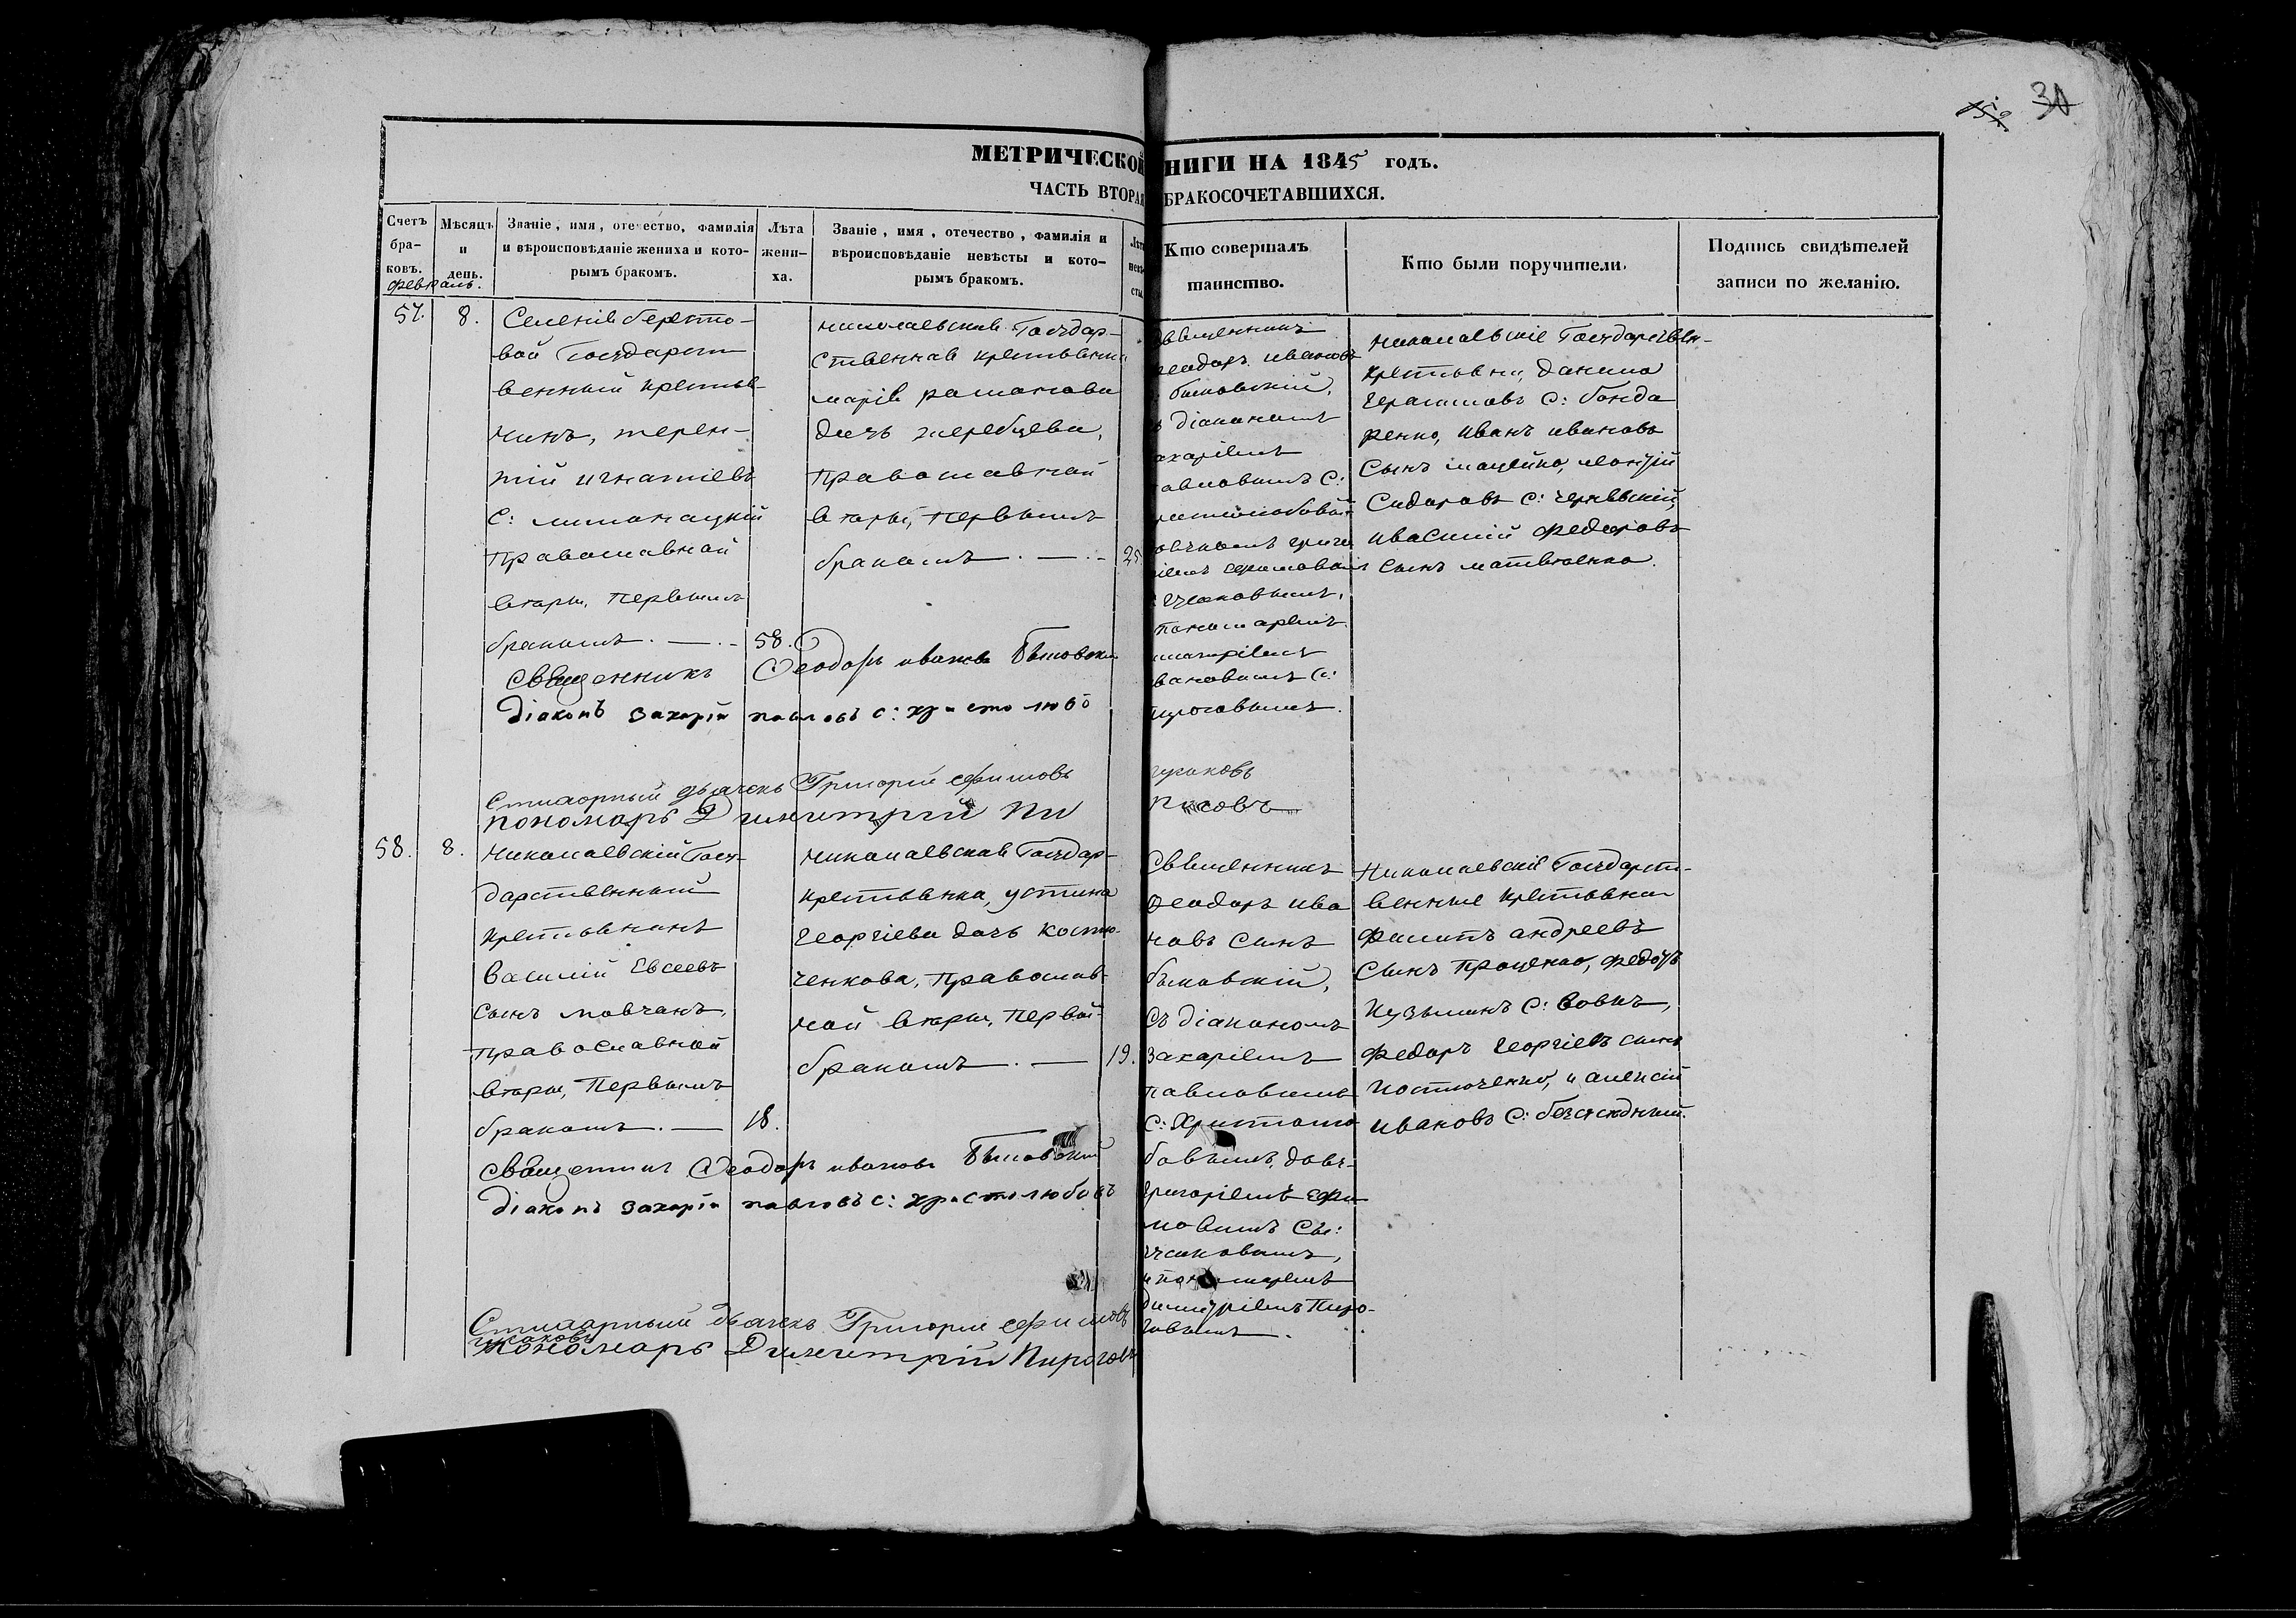 30
МЕТРИЧЕСКОЙ НИГИ НА 1845 годъ.
ЧАСТЬ ВТОРАЯ БРАКОСОЧЕТАВШИХСЯ.
Счетъ браковъ.
Мѣсяцъ и день.
Званіе, имя, отечество, фамилія и вѣроисповѣданіе жениха и которымъ бракомъ.
Лѣта жениха.
Званіе, имя, отечество, фамилія и вѣроисповѣданіе невѣсты и которымъ бракомъ.
Лѣта невѣсты
Кто совершалъ таинство.
Кто были поручители.
Подпись свидѣтелей записи по желанію.
февраль.
57.
8.
Селенія берето-
вой Государст
венный крестья-
нинъ, терен-
тій игнатіевъ
С:
Православной
вѣры, первымъ
бракомъ. — 58.
николаевская Государ-
ственная крестьянка
марія романова
дочь жеребцева,
православной
вѣры, первымъ
бракомъ. — 25.
священникъ
еодоръ ивановъ
быковскій,
ъ діакономъ
ахаріемъ
авловымъ С:
ристолюбовы
григо
ріемъ ефимовымъ
гусаковымъ,
пономаремъ
имитріемъ
вановымъ С:
пироговымъ.
николаевскіе Государствен-
крестьяни, данило
герасимовъ С: бонда
ренко, иванъ ивановъ
Сынъ мацейко, леонтій
Сидоровъ С: чернявскій,
ивасилій федоровъ
сынъ матвіенко.
Священникъ Ѳеодоръ ивановъ Быковскій
Діаконъ Захарій павловъ с: христолюбо
Стихарный дьячекъ Григорій ефимовъ гусаковъ
пономарь Димитрій Пироговъ
58.
8.
Николаевскій Госу-
дарственный
крестьянинъ
василій Евсеевъ
сынъ мовчанъ,
православной
вѣры, первымъ
бракомъ. — 18.
николаевская Государ-
крестьянка, устина
георгіева дочь костю-
ченкова, православ-
ной вѣры, первы-
бракомъ. — 19.
Священникъ
Ѳеодоръ ива
новъ сынъ
быковскій,
Съ діакономъ
Захаріемъ
павловымъ
С: Христолю
бовымъ, дьяч-
григоріемъ ефи
мовымъ сы:
гусаковымъ,
и пономаремъ
димитріемъ Пиро-
говымъ.
Николаевскіе Государст-
венные крестьяни
филипъ андреевъ
Сынъ Проценко, федотъ
Кузьминъ С: вовкъ,
федоръ георгіевъ сынъ
костюченко, и алексій
ивановъ С:
Священникъ Ѳеодоръ ивановъ Быковскій
Діаконъ Захарій павловъ с: христолюбовъ
Стихарный дьячекъ Григорій ефимовъ
гусаковъ
пономарь Димитрій Пироговъ